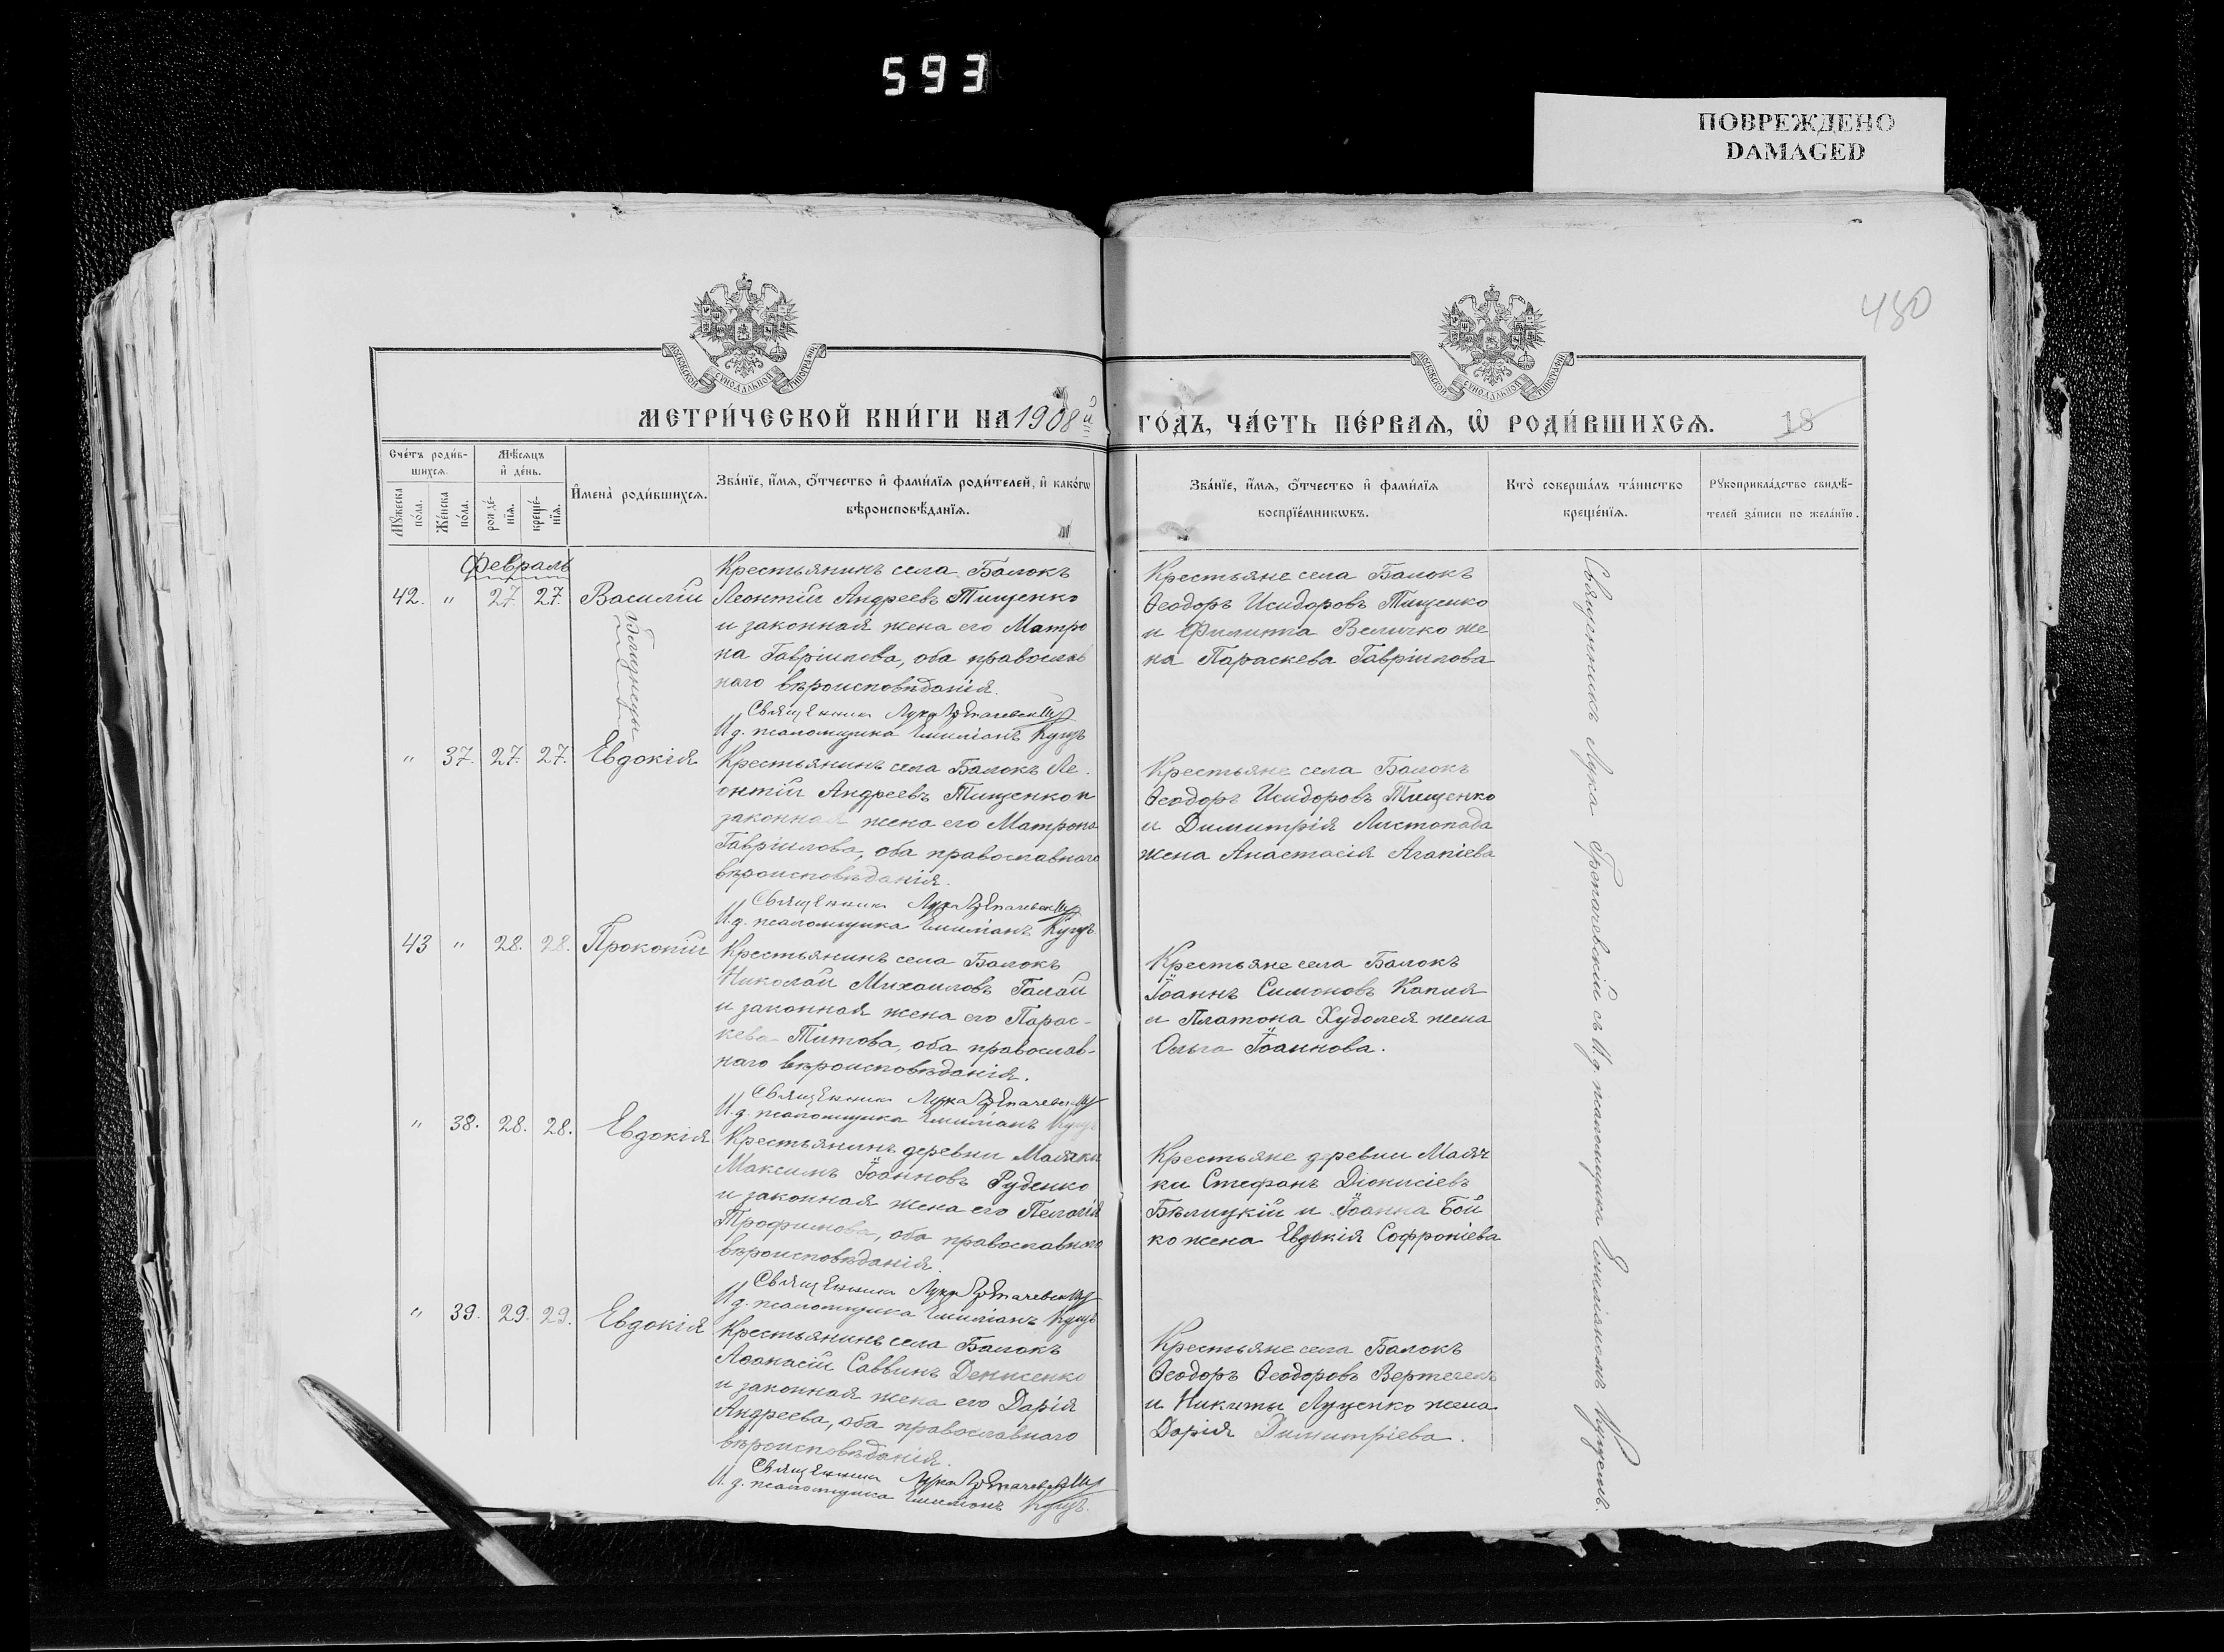 593
ПОВРЕЖДЕНО
DAMAGED
480
МОСКОВСКОЙ СѴНОДАЛЬНОЙ ТИПОГРАФІИ
МОСКОВСКОЙ СѴНОДАЛЬНОЙ ТИПОГРАФІИ
МЕТРИ́ЧЕСКОЙ КНИ́ГИ НА 1908й
ГО́ДЪ, ЧА́СТЬ ПЕ́РВАѦ, Ѡ҆ РОДИ́ВШИХСѦ.
18
Сче́тъ роди́в-
шихсѧ.
Мꙋ́жеска по́ла.
Же́нска по́ла.
Мѣ́сѧцъ
и҆ де́нь.
рожде́-
нїѧ.
креще́-
нїѧ.
И҆мена̀ роди́вшихсѧ.
Зва́нїе, и҆́мѧ, ѻ҆́тчество и҆ фами́лїѧ роди́телей, и҆ како́гѡ
вѣроисповѣ́данїѧ.
Зва́нїе, и҆́мѧ, ѻ҆́тчество и҆ фами́лїѧ
воспрїе́мникѡвъ.
Кто̀ соверша́лъ та́инство
креще́нїѧ.
Рꙋкоприкла́дство свидѣ́-
телей за́писи по жела́нїю.
Февраль
42. " 27. 27. Василій
Близнецы
Крестьянинъ села Балокъ
Леонтій Андреевъ Тищенко
и законная жена его Матро
на Гавріилова, оба православ
наго вѣроисповѣданія.
Священникъ Лука
И.д. псаломщика Емиліанъ Куцъ
Крестьяне села Балокъ
Ѳеодоръ Исидоровъ Тищенко
и Филиппа Величко же
на Параскева Гавріилова
" 37. 27. 27. Евдокія
Крестьянинъ села Балокъ Ле
онтій Андреевъ Тищенко и
законная жена его Матрона
Гавріилова, оба православнаго
вѣроисповѣданія.
Священникъ Лука
И.д. псаломщика Емиліанъ Куцъ
Крестьяне села Балокъ
Ѳеодоръ Исидоровъ Тищенко
и Димитрія Листопада
жена Анастасія Агапіева
43 " 28. 28. Прокопій
Крестьянинъ села Балокъ
Николай Михаиловъ Галай
и законная жена его Парас-
кева Титова, оба православ-
наго вѣроисповѣданія.
Священникъ Лука
И.д. псаломщика Емиліанъ Куцъ
Крестьяне села Балокъ
Іоаннъ Симоновъ Капля
и Платона Худолея жена
Ольга Іоаннова.
" 38. 28. 28. Евдокія
Крестьянинъ деревни Маячки
Максимъ Іоанновъ Руденко
и законная жена его Пелагія
Трофимова, оба православнаго
вѣроисповѣданія.
Священникъ Лука
И.д. псаломщика Емиліанъ Куцъ
Крестьяне деревни Маяч
ки Стефанъ Діонисіевъ
Бѣлицкій и Іоанна Бой
ко жена Евдокія Софроніева
" 39. 29. 29. Евдокія
Крестьянинъ села Балокъ
Аѳанасій Саввинъ Денисенко
и законная жена его Дарія
Андреева, оба православнаго
вѣроисповѣданія.
Священникъ Лука
И.д. псаломщика Емиліанъ Куцъ.
Крестьяне села Балокъ
Ѳеодоръ Ѳеодоровъ Вертегелъ
и Никиты Луценко жена
Дарія Димитріева.
Священникъ Лука съ И.д. псаломщика Емиліаномъ Куцемъ.